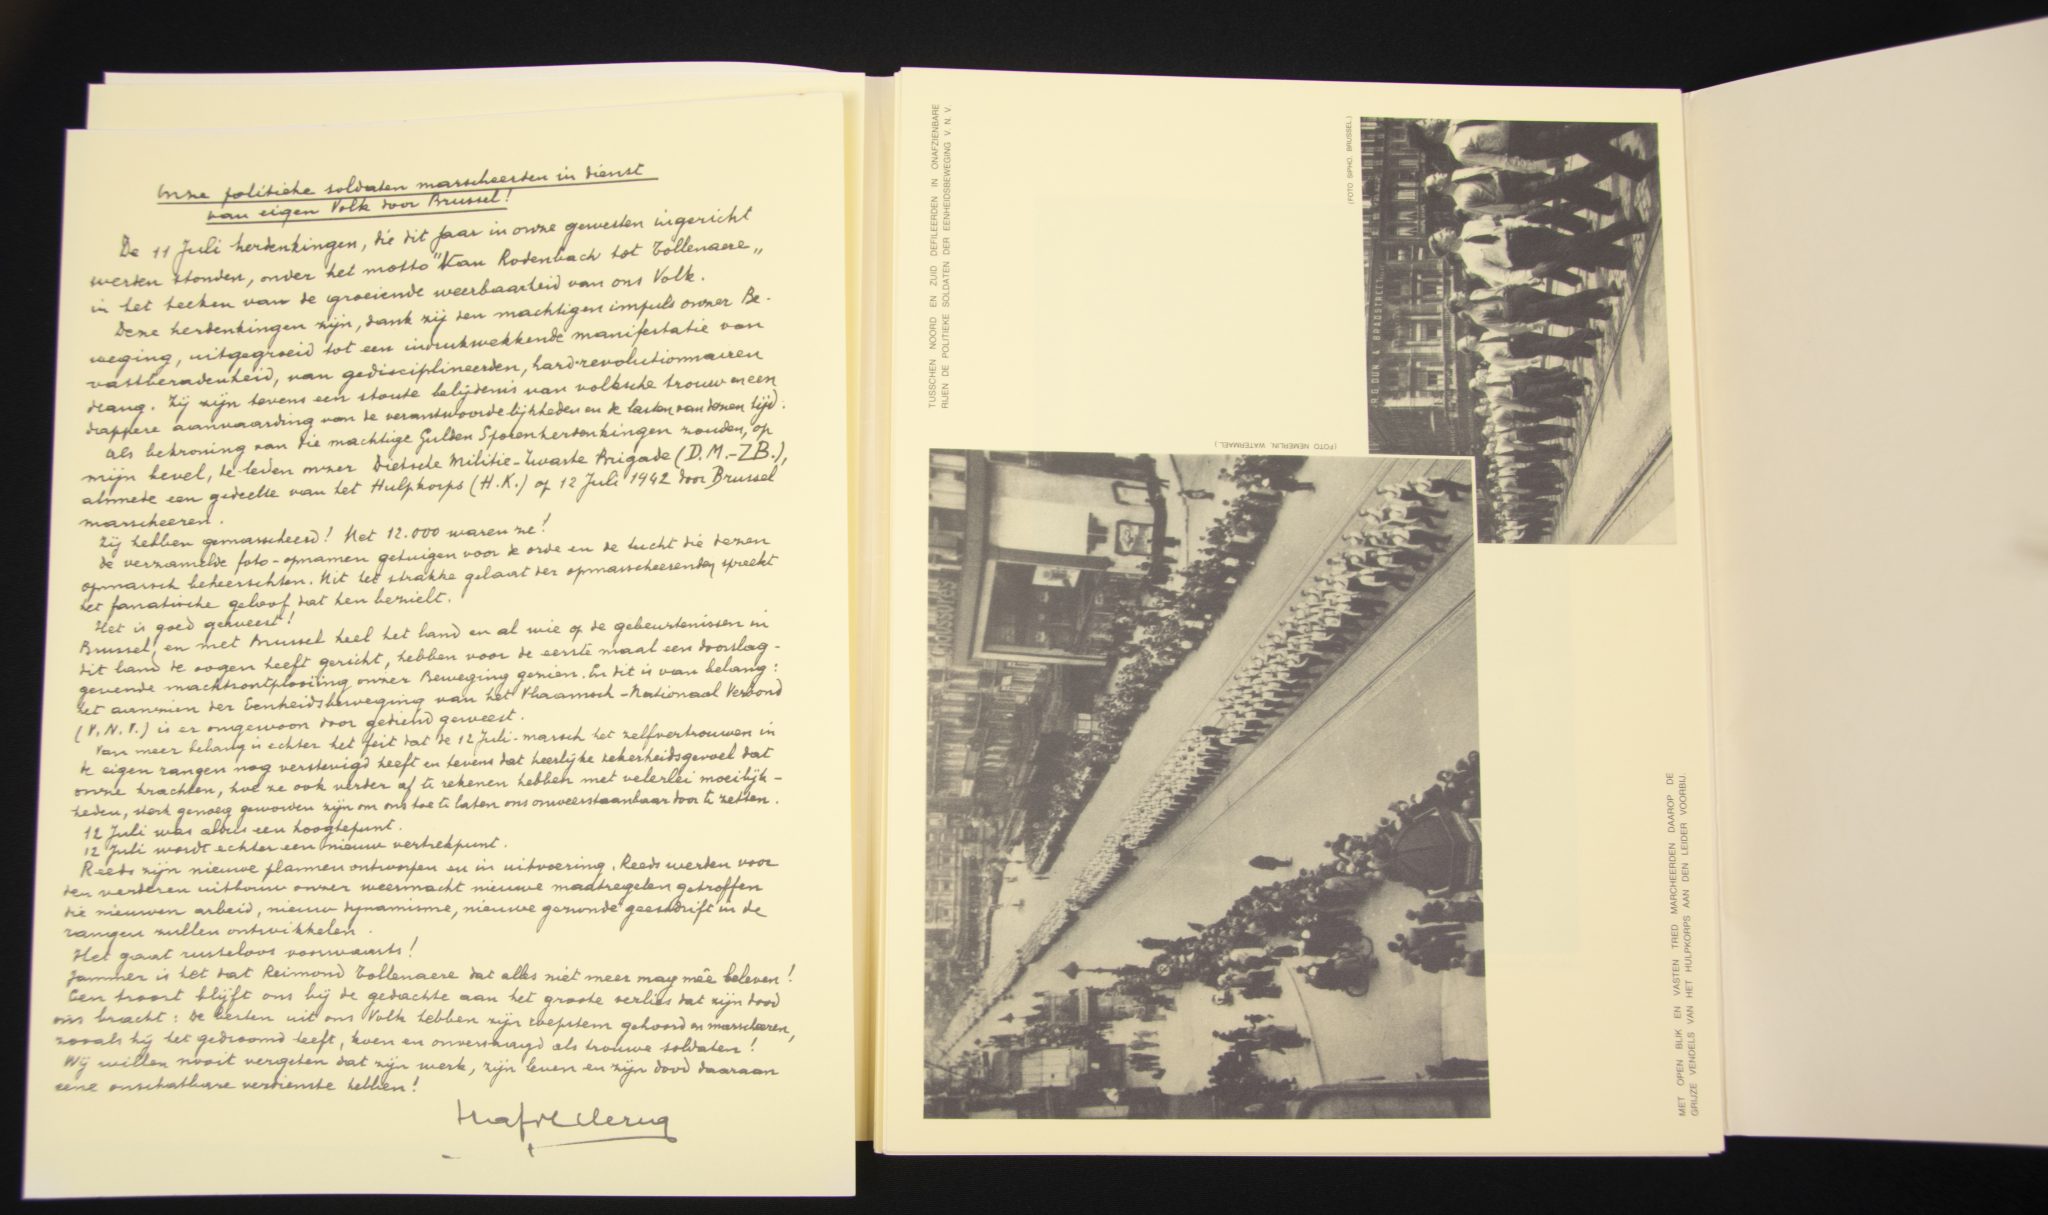 Onze politieke soldaten marscheerden in dienst
van eigen Volk door Brussel!
De 11 Juli herdenkingen, die dit jaar in onze gewesten ingericht
werden stonden, onder het motto "Van Rodenbach tot Tollenaere"
in het teeken van de groeiende weerbaarheid van ons Volk.
Deze herdenkingen zijn, dank zij den machtigen impuls onzer Be-
weging, uitgegroeid tot een indrukwekkende manifestatie van
vastberadenheid, van gedisciplineerden, hard-revolutionnairen
drang. Zij zijn tevens een stoute belijdenis van volksche trouw en een
dappere aanvaarding van de verantwoordelijkheden en de lasten van dezen tijd.
Als bekroning van die machtige Gulden Sporenherdenkingen zouden, op
mijn bevel, de leden onzer Dietsche Militie-Zwarte Brigade (D.M.-Z.B.),
alsmede een gedeelte van het Hulpkorps (H.K.) op 12 Juli 1942 door Brussel
marscheeren.
Zij hebben gemarscheerd! Met 12.000 waren ze!
De verzamelde foto-opnamen getuigen voor de orde en de tucht die dezen
opmarsch beheerschten. Uit het strakke gelaat der opmarscheerenden spreekt
het fanatische geloof dat hen bezielt.
Het is goed geweest!
Brussel, en met Brussel heel het land en al wie op de gebeurtenissen in
dit land de oogen heeft gericht, hebben voor de eerste maal een doorslag-
gevende machtsontplooiing onzer Beweging gezien. En dit is van belang:
het aanzien der Eenheidsbeweging van het Vlaamsch-Nationaal Verbond
(V.N.V.) is er ongewoon door gediend geweest.
Van meer belang is echter het feit dat de 12 Juli-marsch het zelfvertrouwen in
de eigen rangen nog verstevigd heeft en tevens dat heerlijke zekerheidsgevoel dat
onze krachten, hoe ze ook verder af te rekenen hebben met velerlei moeilijk-
heden, sterk genoeg geworden zijn om ons toe te laten ons onweerstaanbaar door te zetten.
12 Juli was aldus een hoogtepunt.
12 Juli wordt echter een nieuw vertrekpunt.
Reeds zijn nieuwe plannen ontworpen en in uitvoering. Reeds werden voor
den verderen uitbouw onzer weermacht nieuwe maatregelen getroffen
die nieuwen arbeid, nieuw dynamisme, nieuwe gezonde geestdrift in de
rangen zullen ontwikkelen.
Het gaat rusteloos voorwaarts!
Jammer is het dat Reimond Tollenaere dat alles niet meer mag mêe beleven!
Een troost blijft ons bij de gedachte aan het groote verlies dat zijn dood
ons bracht: De besten uit ons Volk hebben zijn roepstem gehoord en marscheeren,
zooals hij het gedroomd heeft, koen en onversaagd als trouwe soldaten!
Wij willen nooit vergeten dat zijn werk, zijn leven en zijn dood daaraan
eene onschatbare verdienste hebben!
TUSSCHEN NOORD EN ZUID DEFILEERDEN IN ONAFZIENBARE
RIJEN DE POLITIEKE SOLDATEN DER EENHEIDSBEWEGING V. N. V.
(FOTO SIPHO, BRUSSEL.)
R.G. DUN & BRADSTREET
(FOTO NEMERLIN, WATERMAEL.)
CHAUSSURES
MET OPEN BLIK EN VASTEN TRED MARCHEERDEN DAAROP DE
GRIJZE VENDELS VAN HET HULPKORPS AAN DEN LEIDER VOORBIJ.